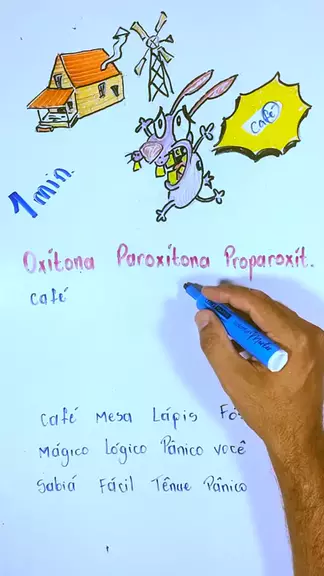 café
1 min.
Oxítona Paroxítona Proparoxít.
café
Café Mesa Lápis Fó
Mágico Lógico Pânico você
Sabiá Fácil Tênue Pânico